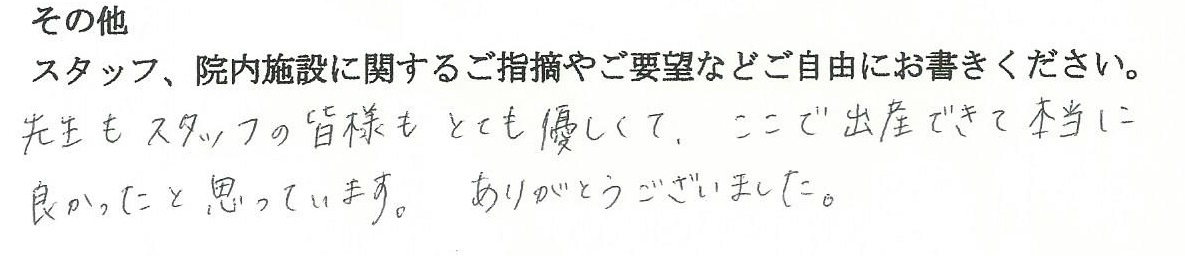 その他
スタッフ、院内施設に関するご指摘やご要望などご自由にお書きください。
先生もスタッフの皆様もとても優しくて、ここで出産できて本当に
良かったと思っています。 ありがとうございました。